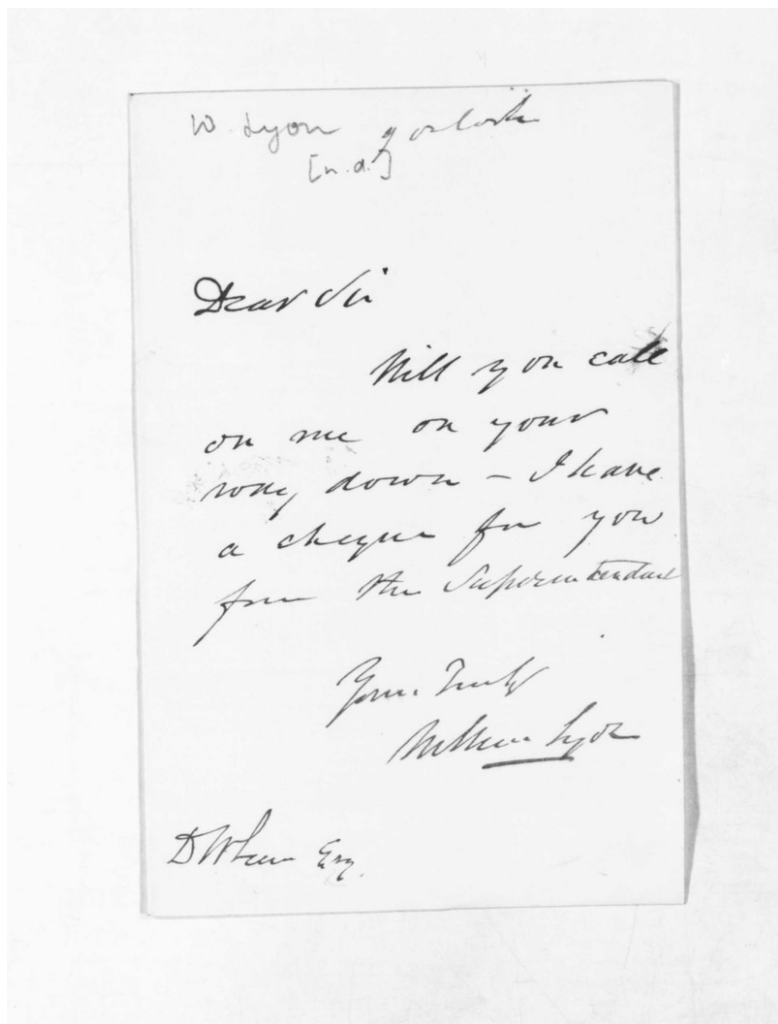 W. Lyon 9 o'clock
[n.d.]
Dear Sir
Will you call
on me on your
way down - I have
a cheque for you
from the Superintendent
Yours Truly
William Lyon
D McLean Esq.